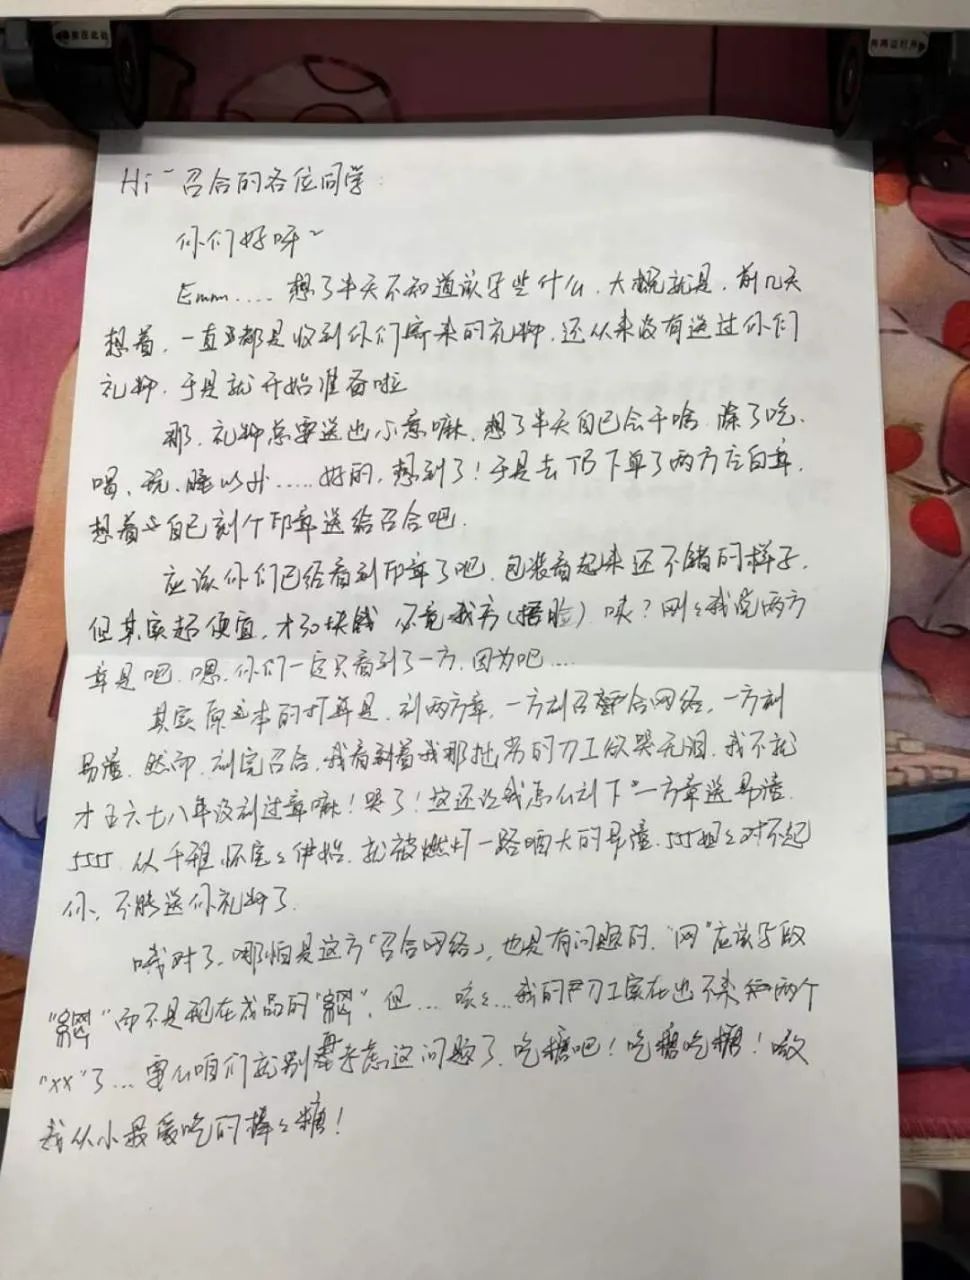 Hi~召合的各位同学:
你们好呀~
Emm.....想了半天不知道该写些什么,大概就是,前几天
想着,一直都是收到你们寄来的礼物,还从来没有送过你们
礼物,于是就开始准备啦
那,礼物总要送心意嘛,想了半天自己会干啥,除了吃、
喝、玩、睡以外.....好的,想到了!于是去TB下单了两方石白章,
想着自己刻个印章送给召合吧.
应该你们已经看到印章了吧,包装看起来还不错的样子,
但其实超便宜,才30块钱 毕竟我穷(捂脸).咦?刚刚我说两方
章是吧,嗯,你们一定只看到了一方,因为吧....
其实原本的打算是,刻两方章,一方刻召合网络,一方刻
易潼,然而,刻完召合,我看着我那拙劣的刀工欲哭无泪,我不就
才五六七八年没刻过章嘛!哭了!这还让我怎么刻下一方章送易潼.
5555,从千雅怀宝宝伊始,就被燃灯一路哂大的易潼,555姐姐对不起
你,不能送你礼物了.
哦对了,哪怕是这方「召合网络」,也是有问题的,"网"应该写成
" "而不是现在成品的" ",但....咳咳...我的刀工实在出不来 两个
"xx"了...要么咱们就别再考虑这问题了,吃糖吧!吃糖吃糖!嗷
我从小最爱吃的棒棒糖!